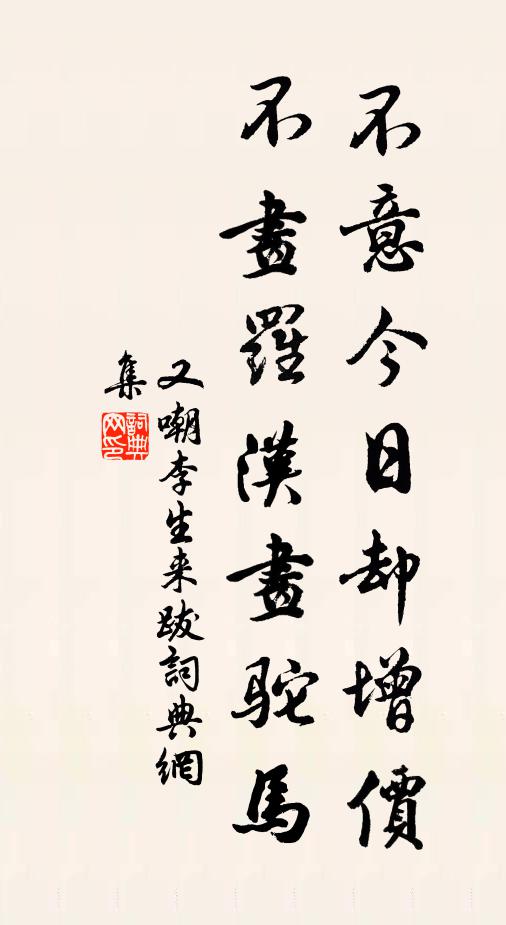 不意今日却增價
不畫羅漢畫驼馬
又嘲李生来跋詞典網
集
詞典
网印